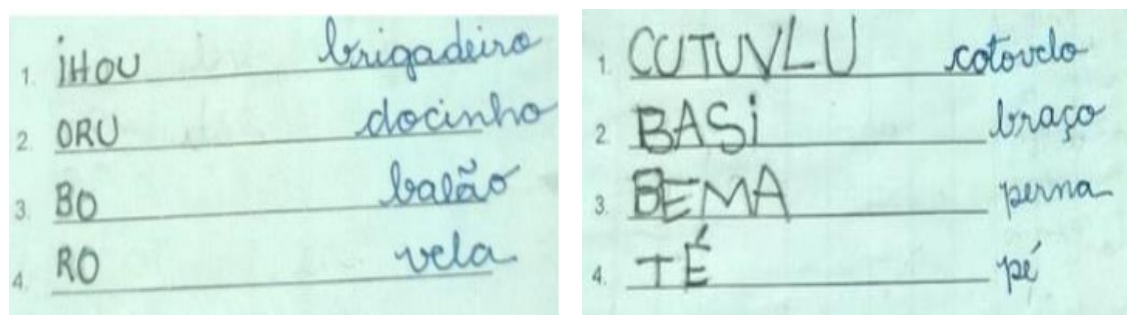 1. IHOU brigadeiro
2. ORU docinho
3. BO balão
4. RO vela
1. CUTUVLU cotovelo
2. BASI braço
3. BEMA perna
4. TÉ pé